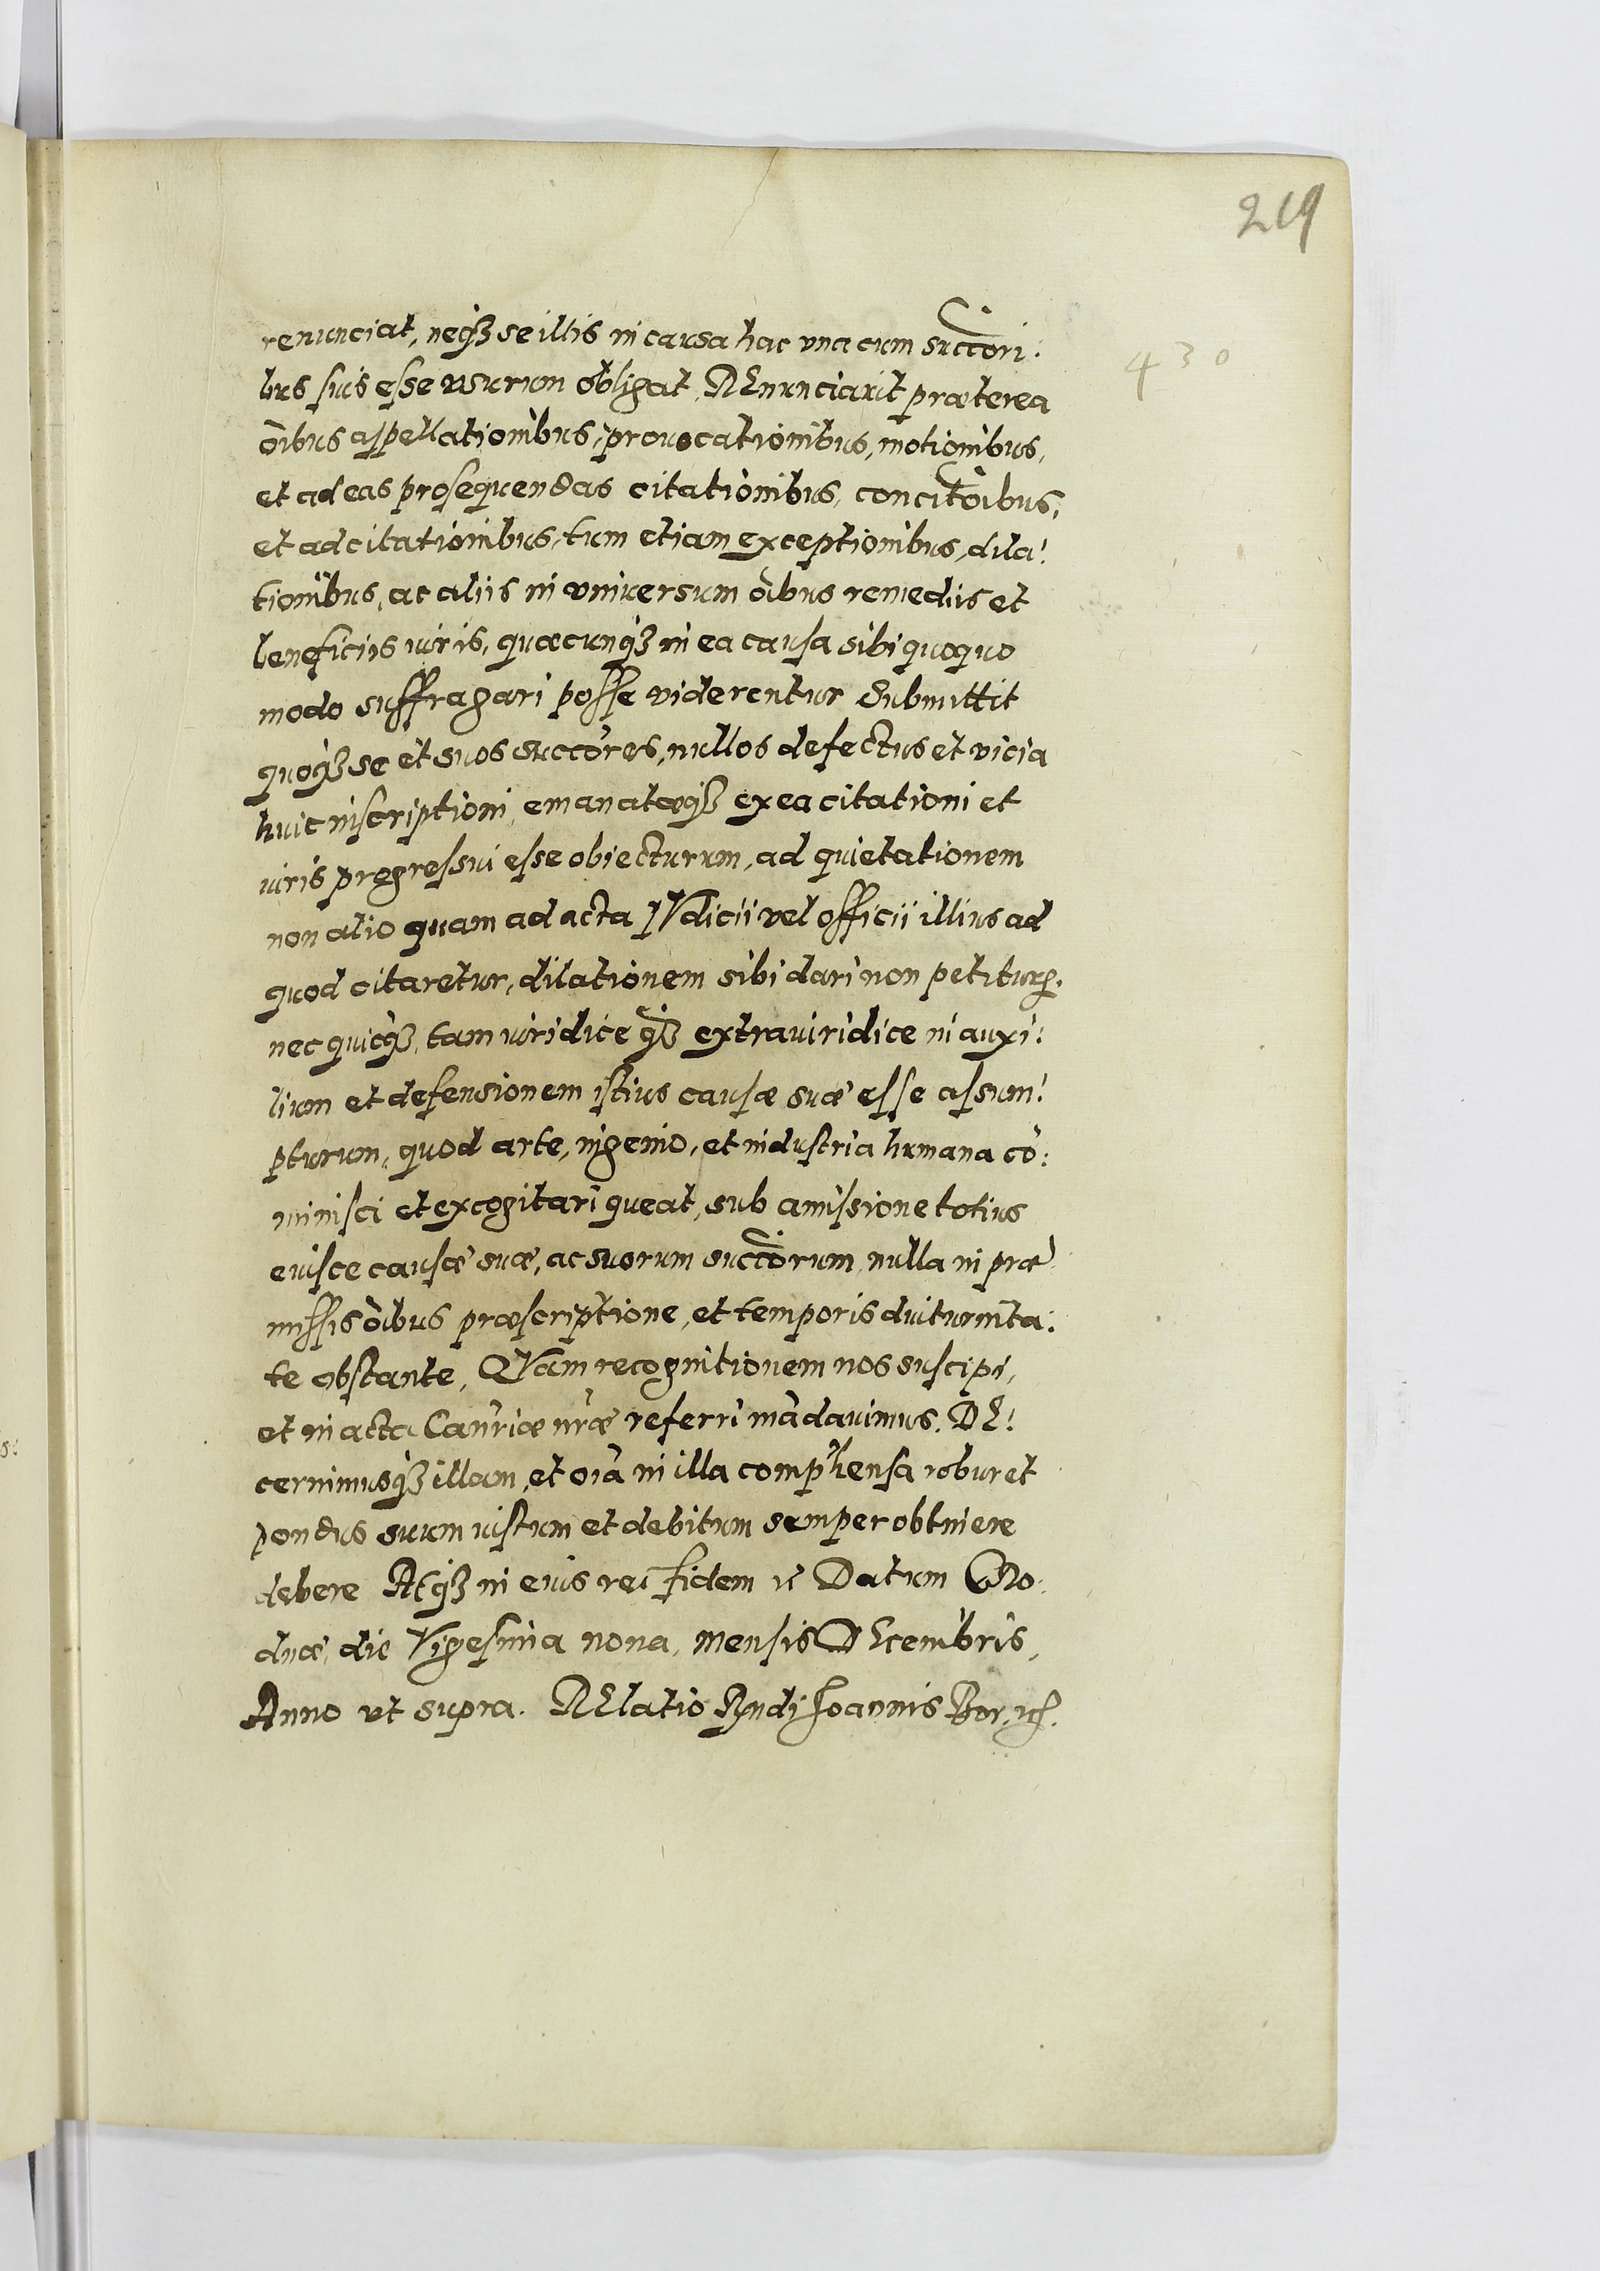 219
430
renunciat, neqꝫ se illis in causa hac vna cum succōri:
bus suis esse vsurum obligat, REnunciauit præterea
oĩbus appellationibus, prouocationibus, motionibus,
et ad eas prosequendas citationibus, concitōibus,
et adcitationibus, tum etiam exceptionibus, dila:
tionibus, ac aliis in vniuersum oĩbus remediis et
beneficiis iuris, quæcunqꝫ in ea causa sibi quoquo
modo suffragari posse viderentur Submittit
quoqꝫ se et suos succōres, nullos defectus et vicia
huic inscriptioni, emanatæqꝫ ex ea citationi et
iuris progressui esse obiecturum, ad quietationem
non alio quam ad acta IVdicii vel officii illius ad
quod citaretur, dilationem sibi dari non petiturꝝ.
nec quicqꝫ, tam iuridice qꝫ extraiuridice in auxi:
lium et defensionem istius causæ suæ esse assum:
pturum, quod arte, ingenio, et industria humana cō:
minisci et excogitari queat, sub amissione totius
eiusce causæ suæ, ac suorum succōrum, nulla in præ
missis oĩbus præscriptione, et temporis diuturnita:
te obstante, QVam recognitionem nos suscipi,
et in acta Canr̃iæ nr̃æ referri mãdauimus. DE:
cernimusqꝫ illam, et oĩa in illa comp̃hensa robur et
pondus suum iustum et debitum semper obtinere
debere Atqꝫ in eius rei fidem ꝛc Datum Gro:
dnæ, die Vigesima nona, mensis DEcembris,
Anno vt supra. RElatio Rndi Ioannis Bor. ꝛc.